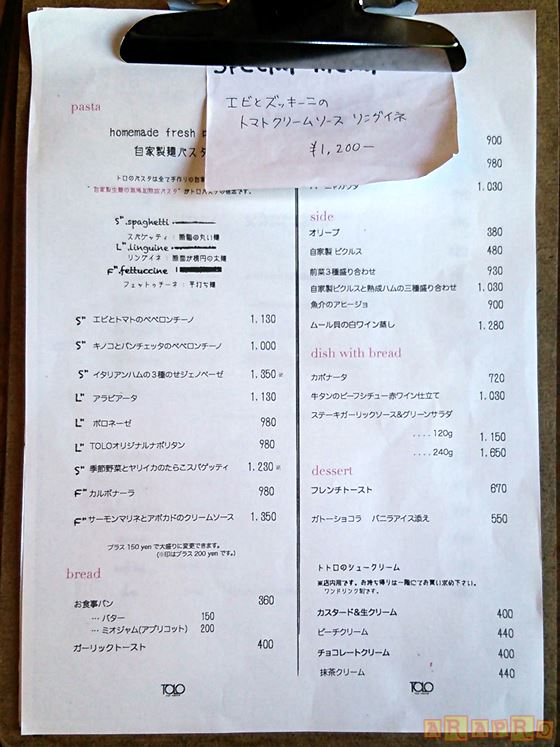 Special Menu
エビとズッキーニの
トマトクリームソース リングイネ
¥1,200-
pasta
homemade fresh
自家製麺パスタ
S".spaghetti
スパゲッティ：断面の丸い麺
L".linguine
リングイネ：断面が楕円の太麺
F".fettuccine
フェットゥチーネ：平打ち麺
S" エビとトマトのペペロンチーノ 1,130
S" キノコとパンチェッタのペペロンチーノ 1,000
S" イタリアンハムの3種のせジェノベーゼ 1,350
L" アラビアータ 1,130
L" ボロネーゼ 980
L" TOLOオリジナルナポリタン 980
S" 季節野菜とヤリイカのたらこスパゲッティ 1,230
F" カルボナーラ 980
F" サーモンマリネとアボカドのクリームソース 1,350
プラス 150 yen で大盛りに変更できます。
(※印はプラス 200 yen です。)
bread
お食事パン 360
… バター 150
… ミオジャム(アプリコット) 200
ガーリックトースト 400
TOLO
900
980
バーニャカウダ 1,030
side
オリーブ 380
自家製 ピクルス 480
前菜3種盛り合わせ 930
自家製ピクルスと熟成ハムの三種盛り合わせ 1,030
魚介のアヒージョ 900
ムール貝の白ワイン蒸し 1,280
dish with bread
カポナータ 720
牛タンのビーフシチュー赤ワイン仕立て 1,030
ステーキガーリックソース&グリーンサラダ
....120g 1,150
....240g 1,650
dessert
フレンチトースト 670
ガトーショコラ バニラアイス添え 550
トトロのシュークリーム
※店内用です。お持ち帰りは一階にてお買い求め下さい。
ワンドリンク制です。
カスタード&生クリーム 400
ピーチクリーム 440
チョコレートクリーム 400
抹茶クリーム 440
TOLO
ARAPRO